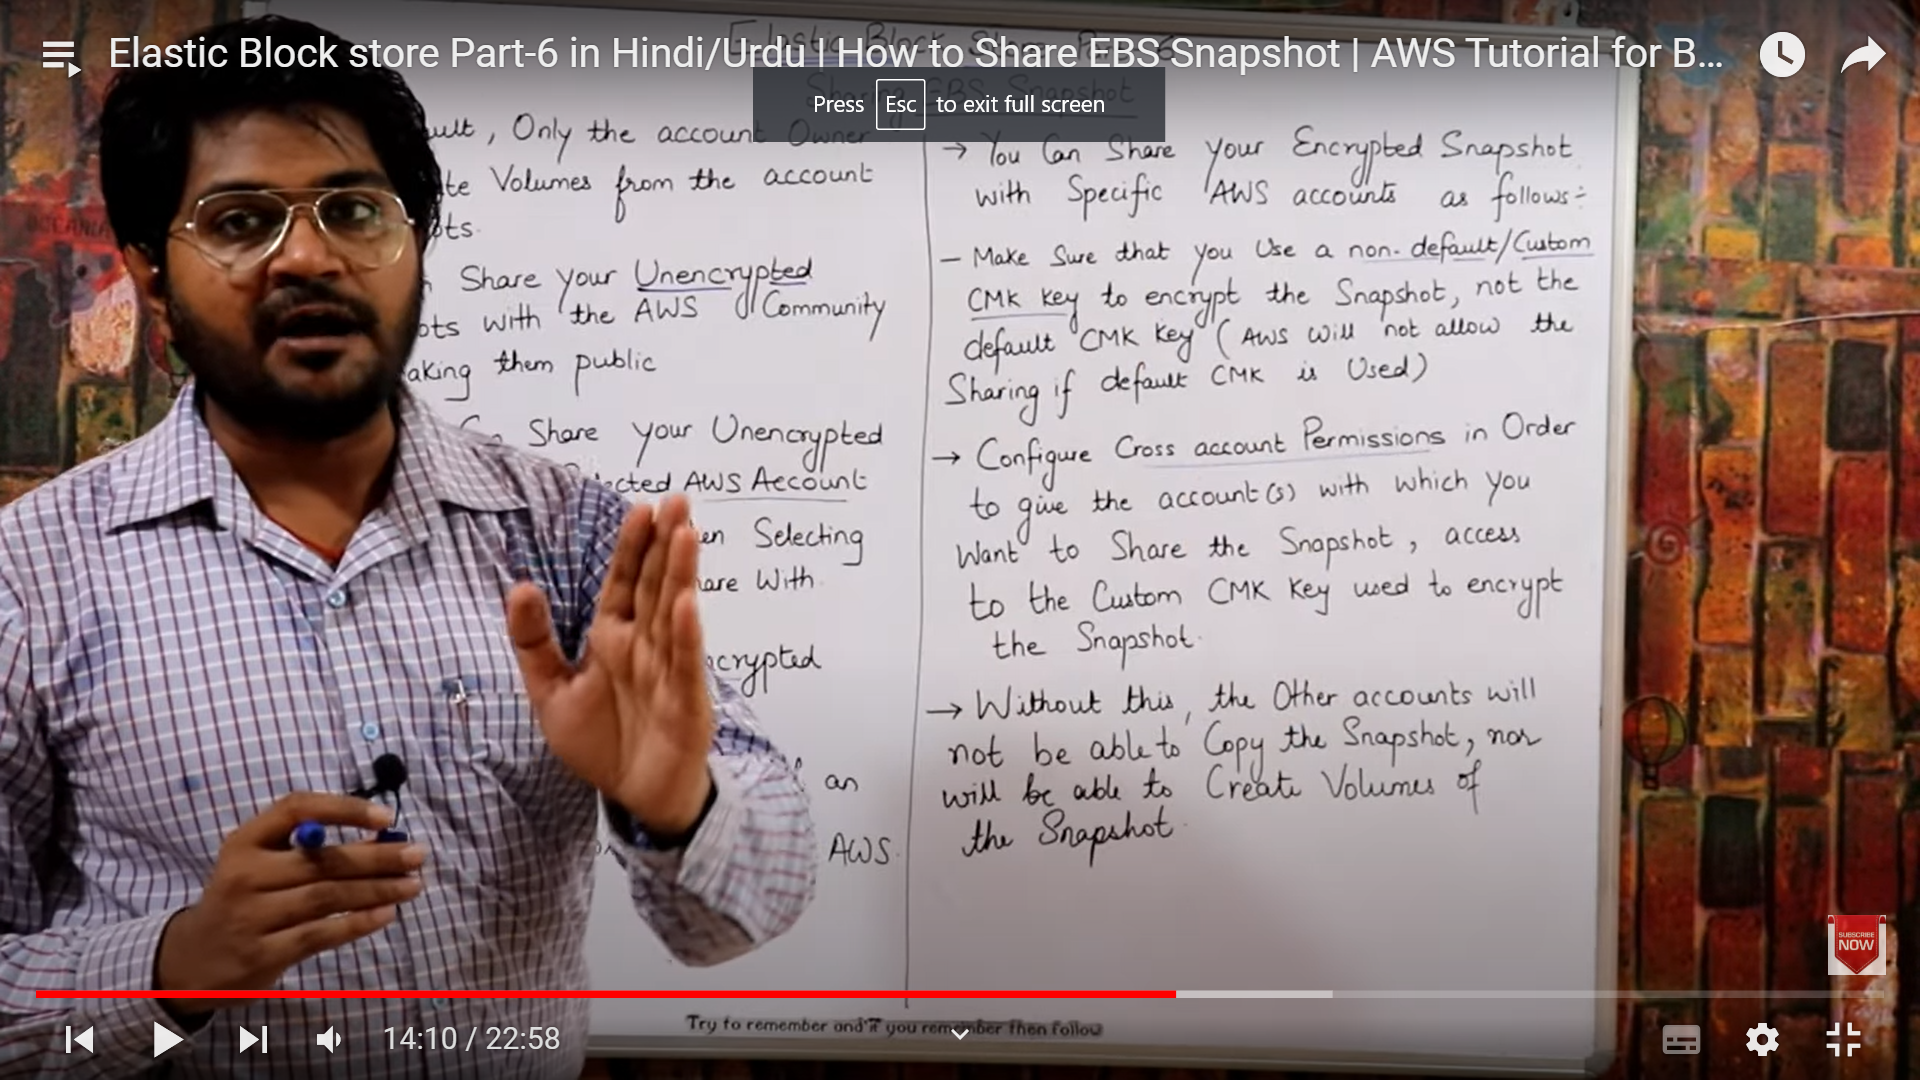 Elastic Block store Part-6 in Hindi/Urdu | How to Share EBS Snapshot | AWS Tutorial for B...
Press Esc to exit full screen
Sharing EBS Snapshot
ult, Only the account Owner
te Volumes from the account
ots.
Share your Unencrypted
ots with the AWS Community
aking them public
Share your Unencrypted
ected AWS Account
en Selecting
are With
crypted
an
AWS.
→ You Can Share your Encrypted Snapshot
with Specific AWS accounts as follows:-
- Make Sure that you Use a non-default/Custom
CMK key to encrypt the Snapshot, not the
default CMK key (AWS will not allow the
Sharing if default CMK is Used)
→ Configure Cross account Permissions in Order
to give the account(s) with which you
Want to Share the Snapshot, access
to the Custom CMK Key used to encrypt
the Snapshot.
→ Without this, the Other accounts will
not be able to Copy the Snapshot, nor
will be able to Create Volumes of
the Snapshot.
SUBSCRIBE
NOW
Try to remember and if you remember then follow
14:10 / 22:58